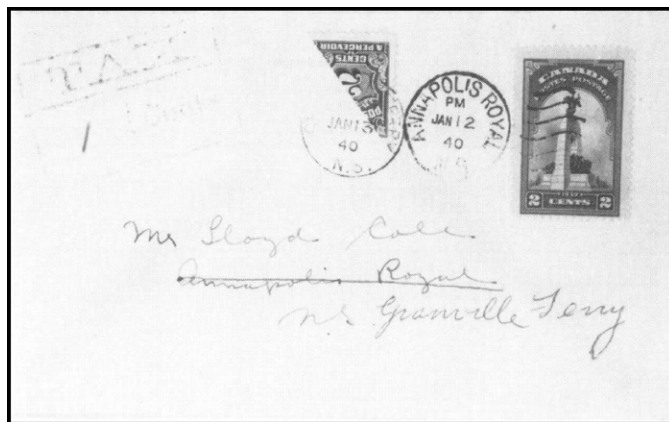 TAX
1
CENTS
A PERCEVOIR
JAN 13
40
N.S.
ANNAPOLIS ROYAL
PM
JAN 12
40
CANADA
POSTES POSTAGE
2 CENTS 2
Mr Lloyd Cole
Annapolis Royal
NS Granville Ferry